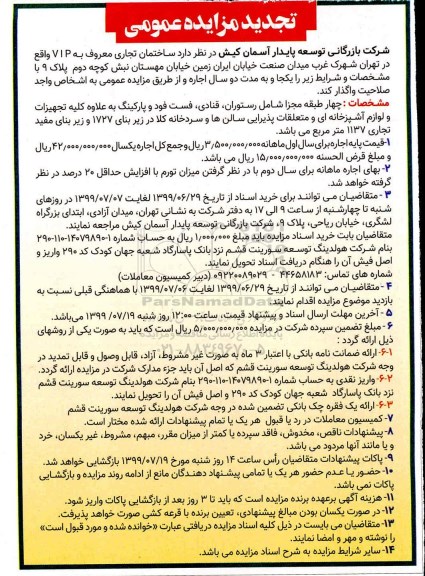 تجدید مزایده عمومی
شرکت بازرگانی توسعه پایدار آسمان کیش در نظر دارد ساختمان تجاری معروف به VIP واقع
در تهران شهرک غرب میدان صنعت خیابان ایران زمین خیابان مهستان نبش کوچه دوم پلاک ۹ با
مشخصات و شرایط زیر را یکجا و به مدت دو سال اجاره و از طریق مزایده عمومی به اشخاص واجد
صلاحیت واگذار کند.
مشخصات : چهار طبقه مجزا شامل رستوران، قنادی، فست فود و پارکینگ به علاوه کلیه تجهیزات
و لوازم آشپزخانه ای و متعلقات پذیرایی سالن ها و سردخانه کلا در زیر بنای ۱۷۲۷ و زیر بنای مفید
تجاری ۱۱۳۷ متر مربع می باشد.
۱-قیمت پایه اجاره برای سال اول ماهانه ۳,۵۰۰,۰۰۰,۰۰۰ ریال و جمع کل اجاره یکسال ۴۲,۰۰۰,۰۰۰,۰۰۰ ریال
و مبلغ قرض الحسنه ۱۵,۰۰۰,۰۰۰,۰۰۰ ریال می باشد.
۲-بهای اجاره ماهانه برای سال دوم با در نظر گرفتن میزان تورم با افزایش حداقل ۲۰ درصد در نظر
گرفته خواهد شد.
۳ - متقاضیان می توانند برای خرید اسناد از تاریخ ۱۳۹۹/۰۶/۲۹ لغایت ۱۳۹۹/۰۷/۰۷ در روزهای
شنبه تا چهارشنبه از ساعت ۹ الی ۱۷ به دفتر شرکت به نشانی تهران، میدان آزادی، ابتدای بزرگراه
لشگری، خیابان ریاحی، پلاک ۹، شرکت بازرگانی توسعه پایدار آسمان کیش مراجعه نمایند.
متقاضیان بابت خرید اسناد مزایده باید مبلغ ۱,۰۰۰,۰۰۰ ریال به حساب شماره ۱-۱۴۰۷۹۸۹۰-۱۱۰-۲۹۰
بنام شرکت هولدینگ توسعه سورینت قشم نزد بانک پاسارگاد شعبه جهان کودک کد ۲۹۰ واریز و
اصل فیش آن را هنگام دریافت اسناد تحویل نمایند.
شماره های تماس: ۴۴۶۵۸۱۸۳ - ۰۹۲۲۰۰۸۹۰۲۹ (دبیر کمیسیون معاملات)
۴ - متقاضیان می توانند از تاریخ ۱۳۹۹/۰۶/۲۹ لغایت ۱۳۹۹/۰۷/۰۶ با هماهنگی قبلی نسبت به
بازدید موضوع مزایده اقدام نمایند.
۵ - آخرین مهلت ارسال اسناد و پیشنهاد قیمت، ساعت ۱۲:۰۰ روز شنبه ۱۳۹۹/۰۷/۱۹ می باشد.
۶ - مبلغ تضمین سپرده شرکت در مزایده ۵,۰۰۰,۰۰۰,۰۰۰ ریال است که باید به صورت یکی از روشهای
ذیل ارائه گردد :
۶-۱-ارائه ضمانت نامه بانکی با اعتبار ۳ ماه به صورت غیر مشروط، آزاد، قابل وصول و قابل تمدید در
وجه شرکت هولدینگ توسعه سورینت قشم که اصل آن باید جزء مدارک شرکت در مزایده ارائه گردد.
۶-۲-واریز نقدی به حساب شماره ۱-۱۴۰۷۹۸۹۰-۱۱۰-۲۹۰ بنام شرکت هولدینگ توسعه سورینت قشم
نزد بانک پاسارگاد شعبه جهان کودک کد ۲۹۰ و اصل فیش آن را تحویل نمایند.
۶-۳-ارائه یک فقره چک بانکی تضمین شده در وجه شرکت هولدینگ توسعه سورینت قشم
۷-کمیسیون معاملات در رد یا قبول هر یک یا تمام پیشنهادات ارائه شده مختار است.
۸-پیشنهادات ناقص، مخدوش، فاقد سپرده یا کمتر از میزان مقرر، مبهم، مشروط، غیر یکسان، خرد
و یا مانند آنها مردود می باشد.
۹-پاکات پیشنهادات متقاضیان رأس ساعت ۱۴ روز شنبه مورخ ۱۳۹۹/۰۷/۱۹ بازگشایی خواهد شد.
۱۰-حضور یا عدم حضور هر یک یا تمامی پیشنهاد دهندگان مانع از ادامه روند مزایده و بازگشایی
پاکات نمی باشد.
۱۱-هزینه آگهی برعهده برنده مزایده است که باید تا ۳ روز بعد از بازگشایی پاکات واریز شود.
۱۲- در صورت یکسان بودن مبالغ پیشنهادی، تعیین برنده با قرعه کشی صورت خواهد پذیرفت.
۱۳-متقاضیان می بایست در ذیل کلیه اسناد مزایده دریافتی عبارت «خوانده شده و مورد قبول است»
را نوشته و مهر و امضا نمایند.
۱۴-سایر شرایط مزایده به شرح اسناد مزایده می باشد.